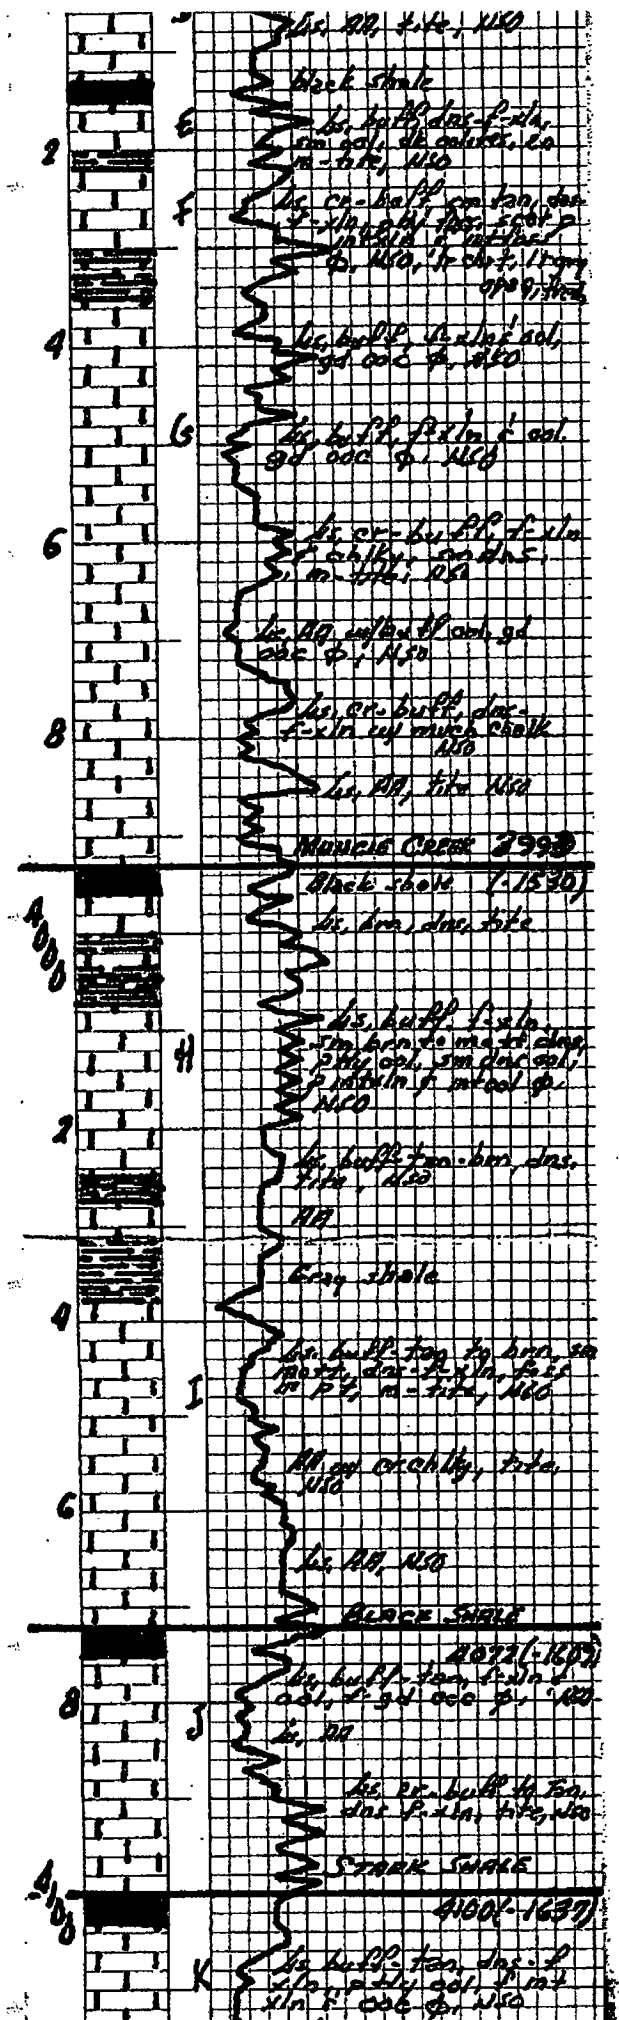 Ls, AA, tite, NSO
Black shale
E
Ls, buff, dns-f-xln,
sm ool, dk oolites,
2
m-tite, NSO
Ls, cr-buff, sm tan, dns
F
f-xln, foss, scat
intxln
φ, NSO, tr chrt,
4
Ls, buff, f-xln, ool,
gd ooc φ, NSO
G
Ls, buff, f-xln ool.
gd ooc φ, NSO
6
Ls, cr-buff, f-xln
chlky, sm dns,
m-tite, NSO
Ls, AA, w/buff ool, gd
ooc φ, NSO
Ls, cr-buff, dns-
8
f-xln w/ much chalk
NSO
Ls, AA, tite NSO
MUNCIE CREEK 3993
Black shale (-1530)
4000
Ls, brn, dns, tite
Ls, buff, f-xln,
H
sm brn to mott, dns,
ptly ool, sm dns ool,
p intxln f intool φ,
NSO
2
Ls, buff-tan-brn, dns,
tite, NSO
AA
Gray shale
4
Ls, buff-tan to brn, sm
mott, dns-f-xln, foss
I
in pt, m-tite, NSO
AA, w/ cr chlky, tite,
NSO
6
Ls, AA, NSO
BLACK SHALE
4072 (-1609)
Ls, buff-tan, f-xln
8
ool, f-gd ooc φ, NSO
J
Ls, AA
Ls, cr-buff to tan,
dns f-xln, tite, NSO
STARK SHALE
4100
4100 (-1637)
Ls, buff-tan, dns-f
K
xln, ptly ool, f int
xln f ooc φ, NSO